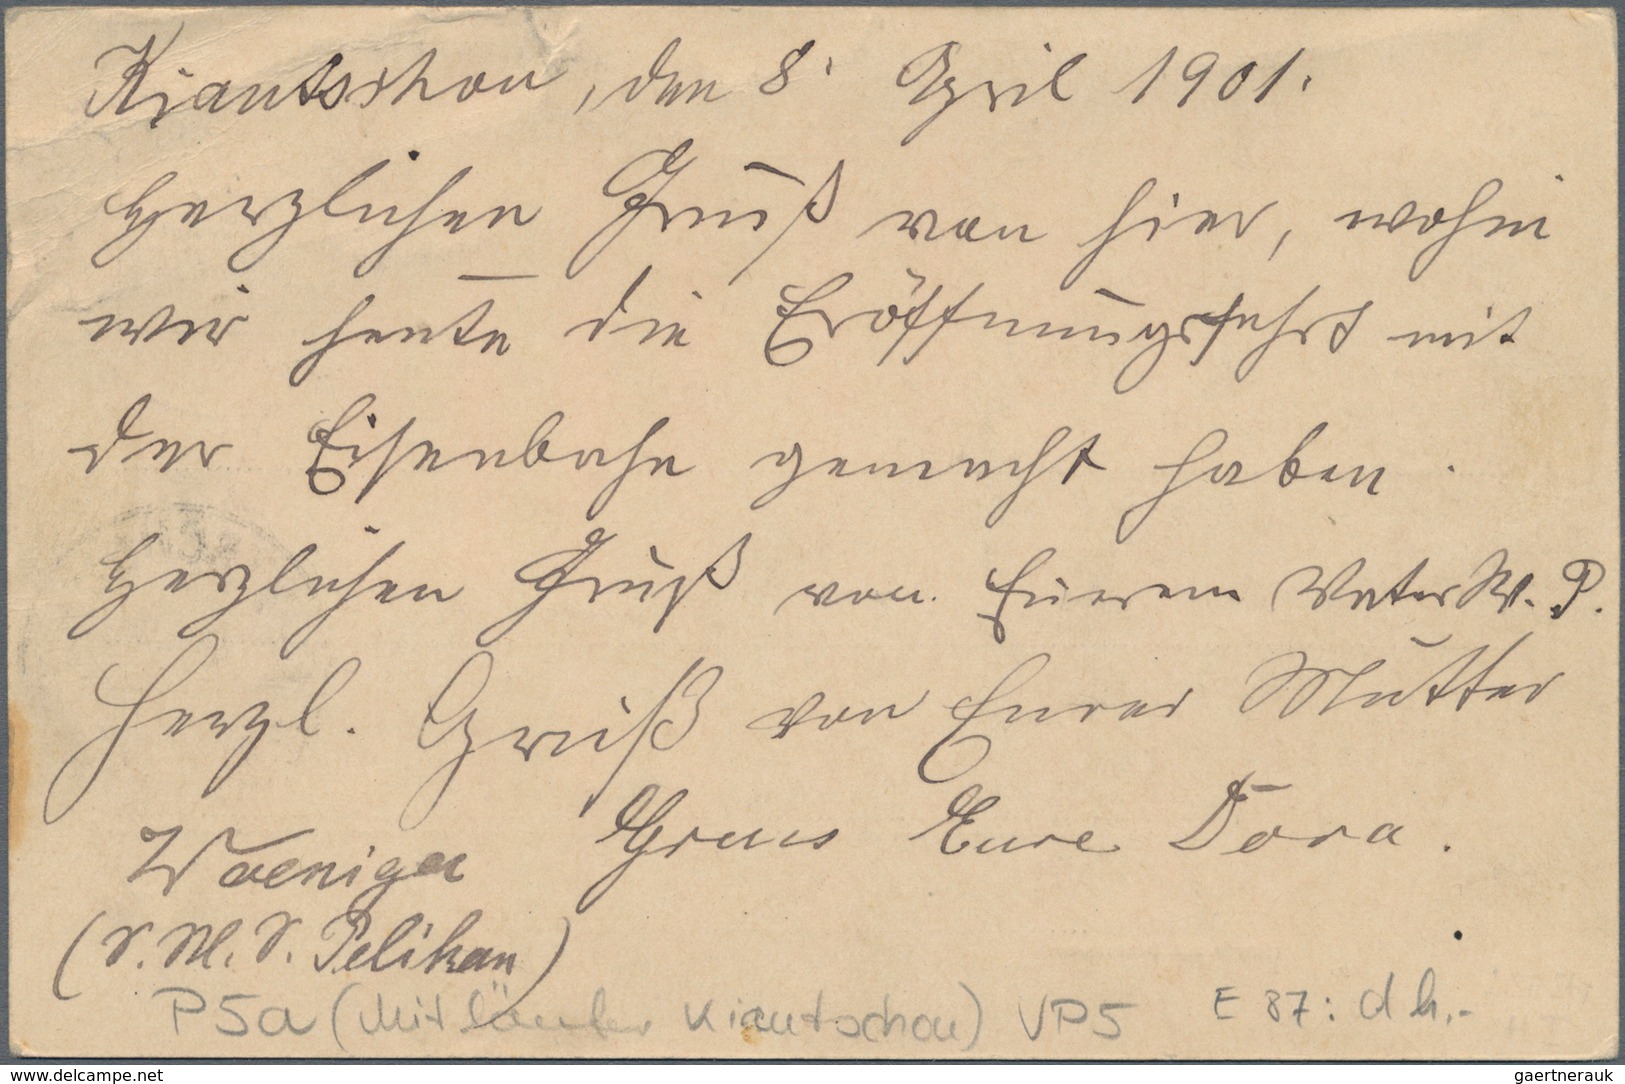 Kiautschou, den 8. April 1901.
Herzlichen Gruß von hier, wohin
wir heute die Eröffnungsfahrt mit
der Eisenbahn gemacht haben.
Herzlichen Gruß von Euerem Vater W. P.
Herzl. Gruß von Eurer Mutter
Gruss Eure Dora.
Woeniger
(S.M.S. Pelikan)
P5a (Mitläufer Kiautschou) VP5 E 87: d h.-
www.delcampe.net
gaertnerauk